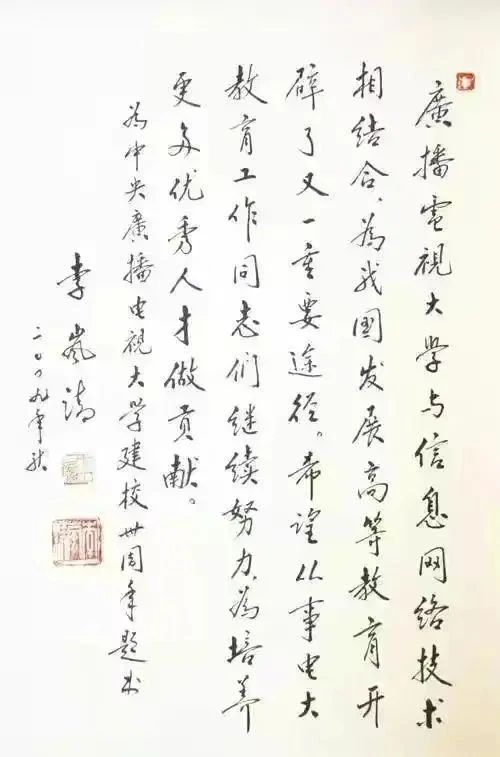 廣播電視大学与信息网络技术
相结合、為我國发展高等教育开
辟了又一重要途径。希望从事电大
教育工作同志们继续努力、為培养
更多优秀人才做贡献。
為中央廣播电視大学建校卅周年题
李岚清
二〇〇九年秋